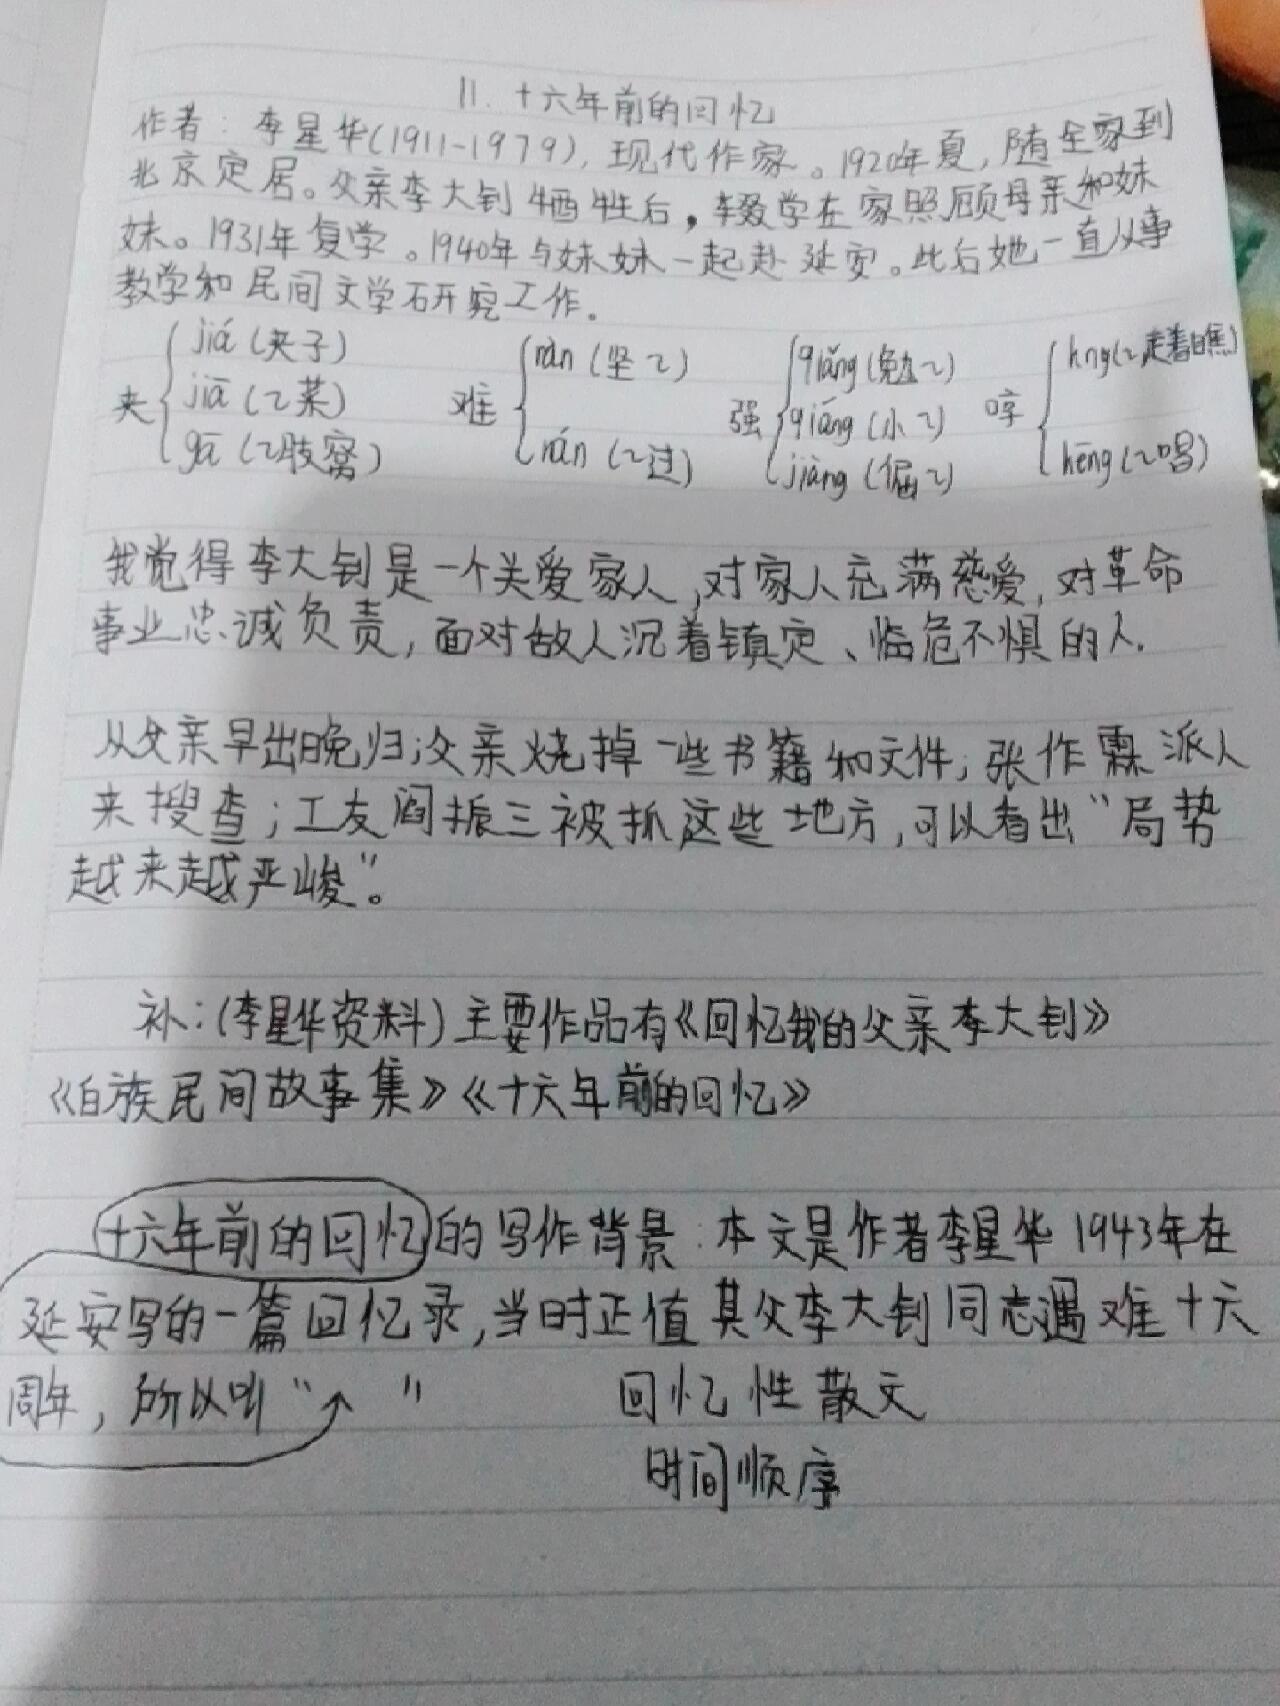 11. 十六年前的回忆
作者:李星华(1911-1979),现代作家。1920年夏,随全家到
北京定居。父亲李大钊牺牲后,辍学在家照顾母亲和妹
妹。1931年复学。1940年与妹妹一起赴延安。此后她一直从事
教学和民间文学研究工作。
夹 jiá(夹子) jiā(~菜) gā(~肢窝)
难 nàn(坚~) nán(~过)
强 qiǎng(勉~) qiáng(小~) jiàng(倔~)
哼 hng(~,走着瞧) hēng(~唱)
我觉得李大钊是一个关爱家人,对家人充满慈爱,对革命
事业忠诚负责,面对敌人沉着镇定、临危不惧的人.
从父亲早出晚归;父亲烧掉一些书籍和文件;张作霖派人
来搜查;工友阎振三被抓这些地方,可以看出“局势
越来越严峻”。
补:(李星华资料)主要作品有《回忆我的父亲李大钊》
《白族民间故事集》《十六年前的回忆》
十六年前的回忆的写作背景:本文是作者李星华1943年在
延安写的一篇回忆录,当时正值其父李大钊同志遇难十六
周年,所以叫“ ” 回忆性散文
时间顺序